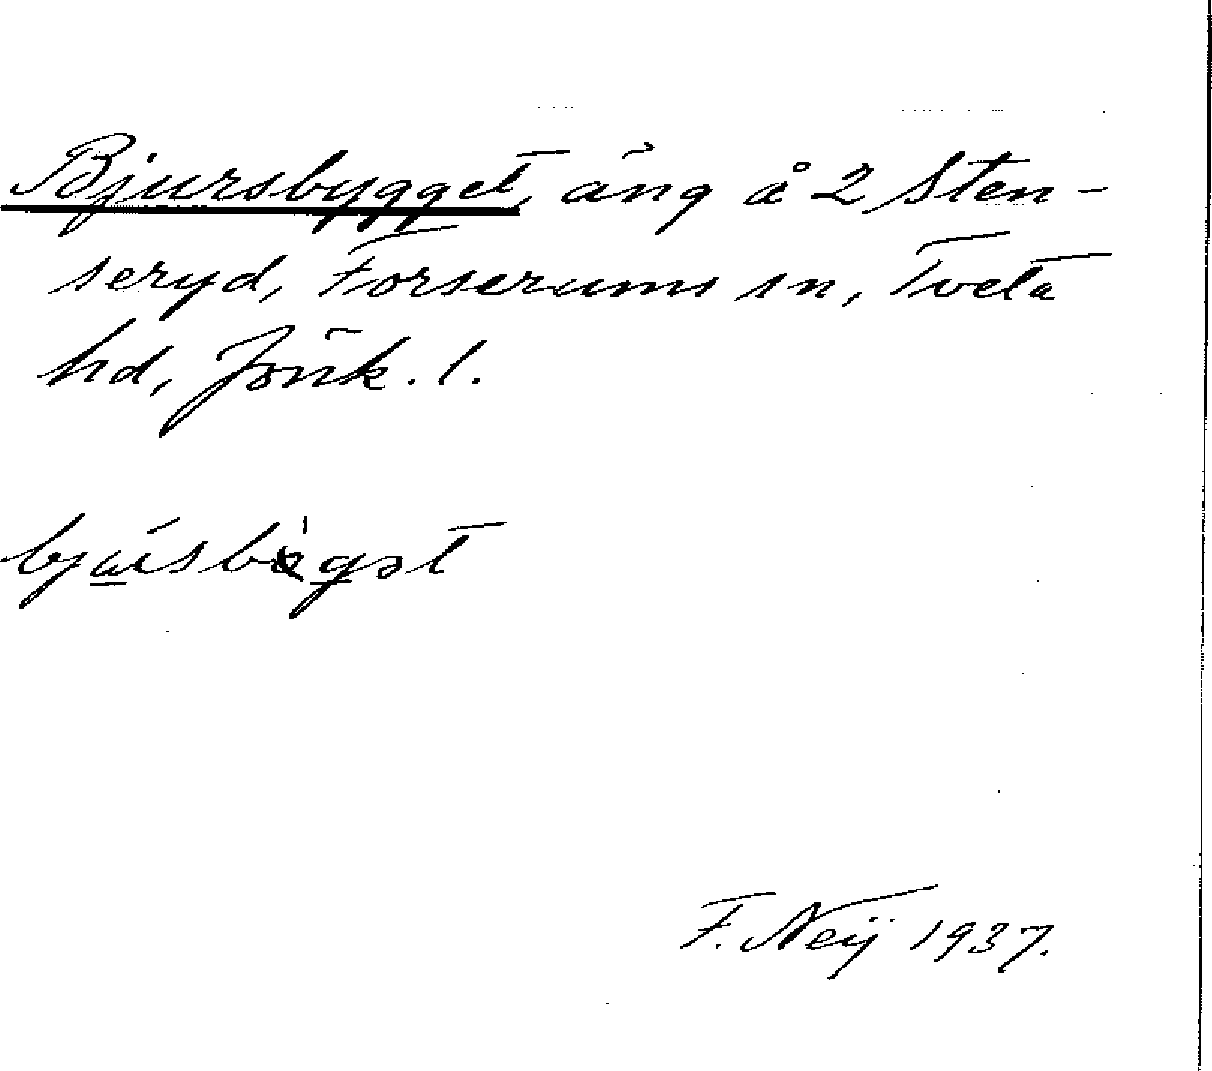 Bjursbygget, äng å 2 Sten-
seryd, Forserums sn, Tveta
hd, Jönk. l.
F. Neij 1937.